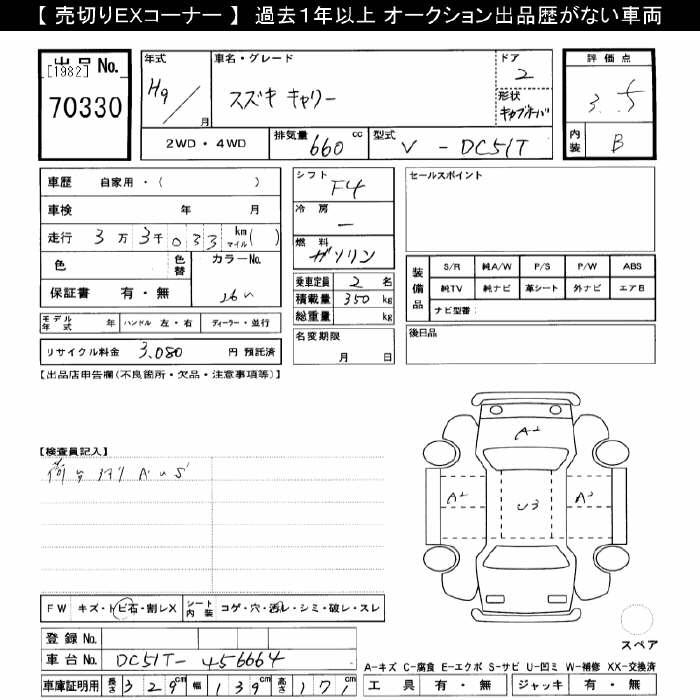 【 売切りEXコーナー 】 過去1年以上 オークション出品歴がない車両
出品 No.
[1982]
70330
年式
H9/
月
車名・グレード
スズキ キャリー
ドア
2
形状
キャブオーバ
評価点
3.5
内装
B
2WD・4WD
排気量
660
cc
型式
V - DC51T
車歴 自家用・( )
車検 年 月
走行 3万3千033 km マイル ( )
色
色替
カラーNo.
26U
保証書 有・無
モデル年式 年 ハンドル 左・右 ディーラー・並行
リサイクル料金 3,080 円 預託済
シフト
F4
冷房
―
燃料
ガソリン
乗車定員 2 名
積載量 350 kg
総重量 kg
名変期限
月 日
セールスポイント
装備品
S/R 純A/W P/S P/W ABS
純TV 純ナビ 革シート 外ナビ エアB
ナビ型番:
後日品
【出品店申告欄(不良箇所・欠品・注意事項等)】
【検査員記入】
A・U・S
A2
A2
U3
A3
FW キズ・トビ石・割レX シート内装 コゲ・穴・汚レ・シミ・破レ・スレ
登録 No.
車台 No. DC51T-456664
車庫証明用 長さ 329 cm 幅 139 cm 高さ 171 cm
スペア
A-キズ C-腐食 E-エクボ S-サビ U-凹ミ W-補修 XX-交換済
工具 有・無 ジャッキ 有・無